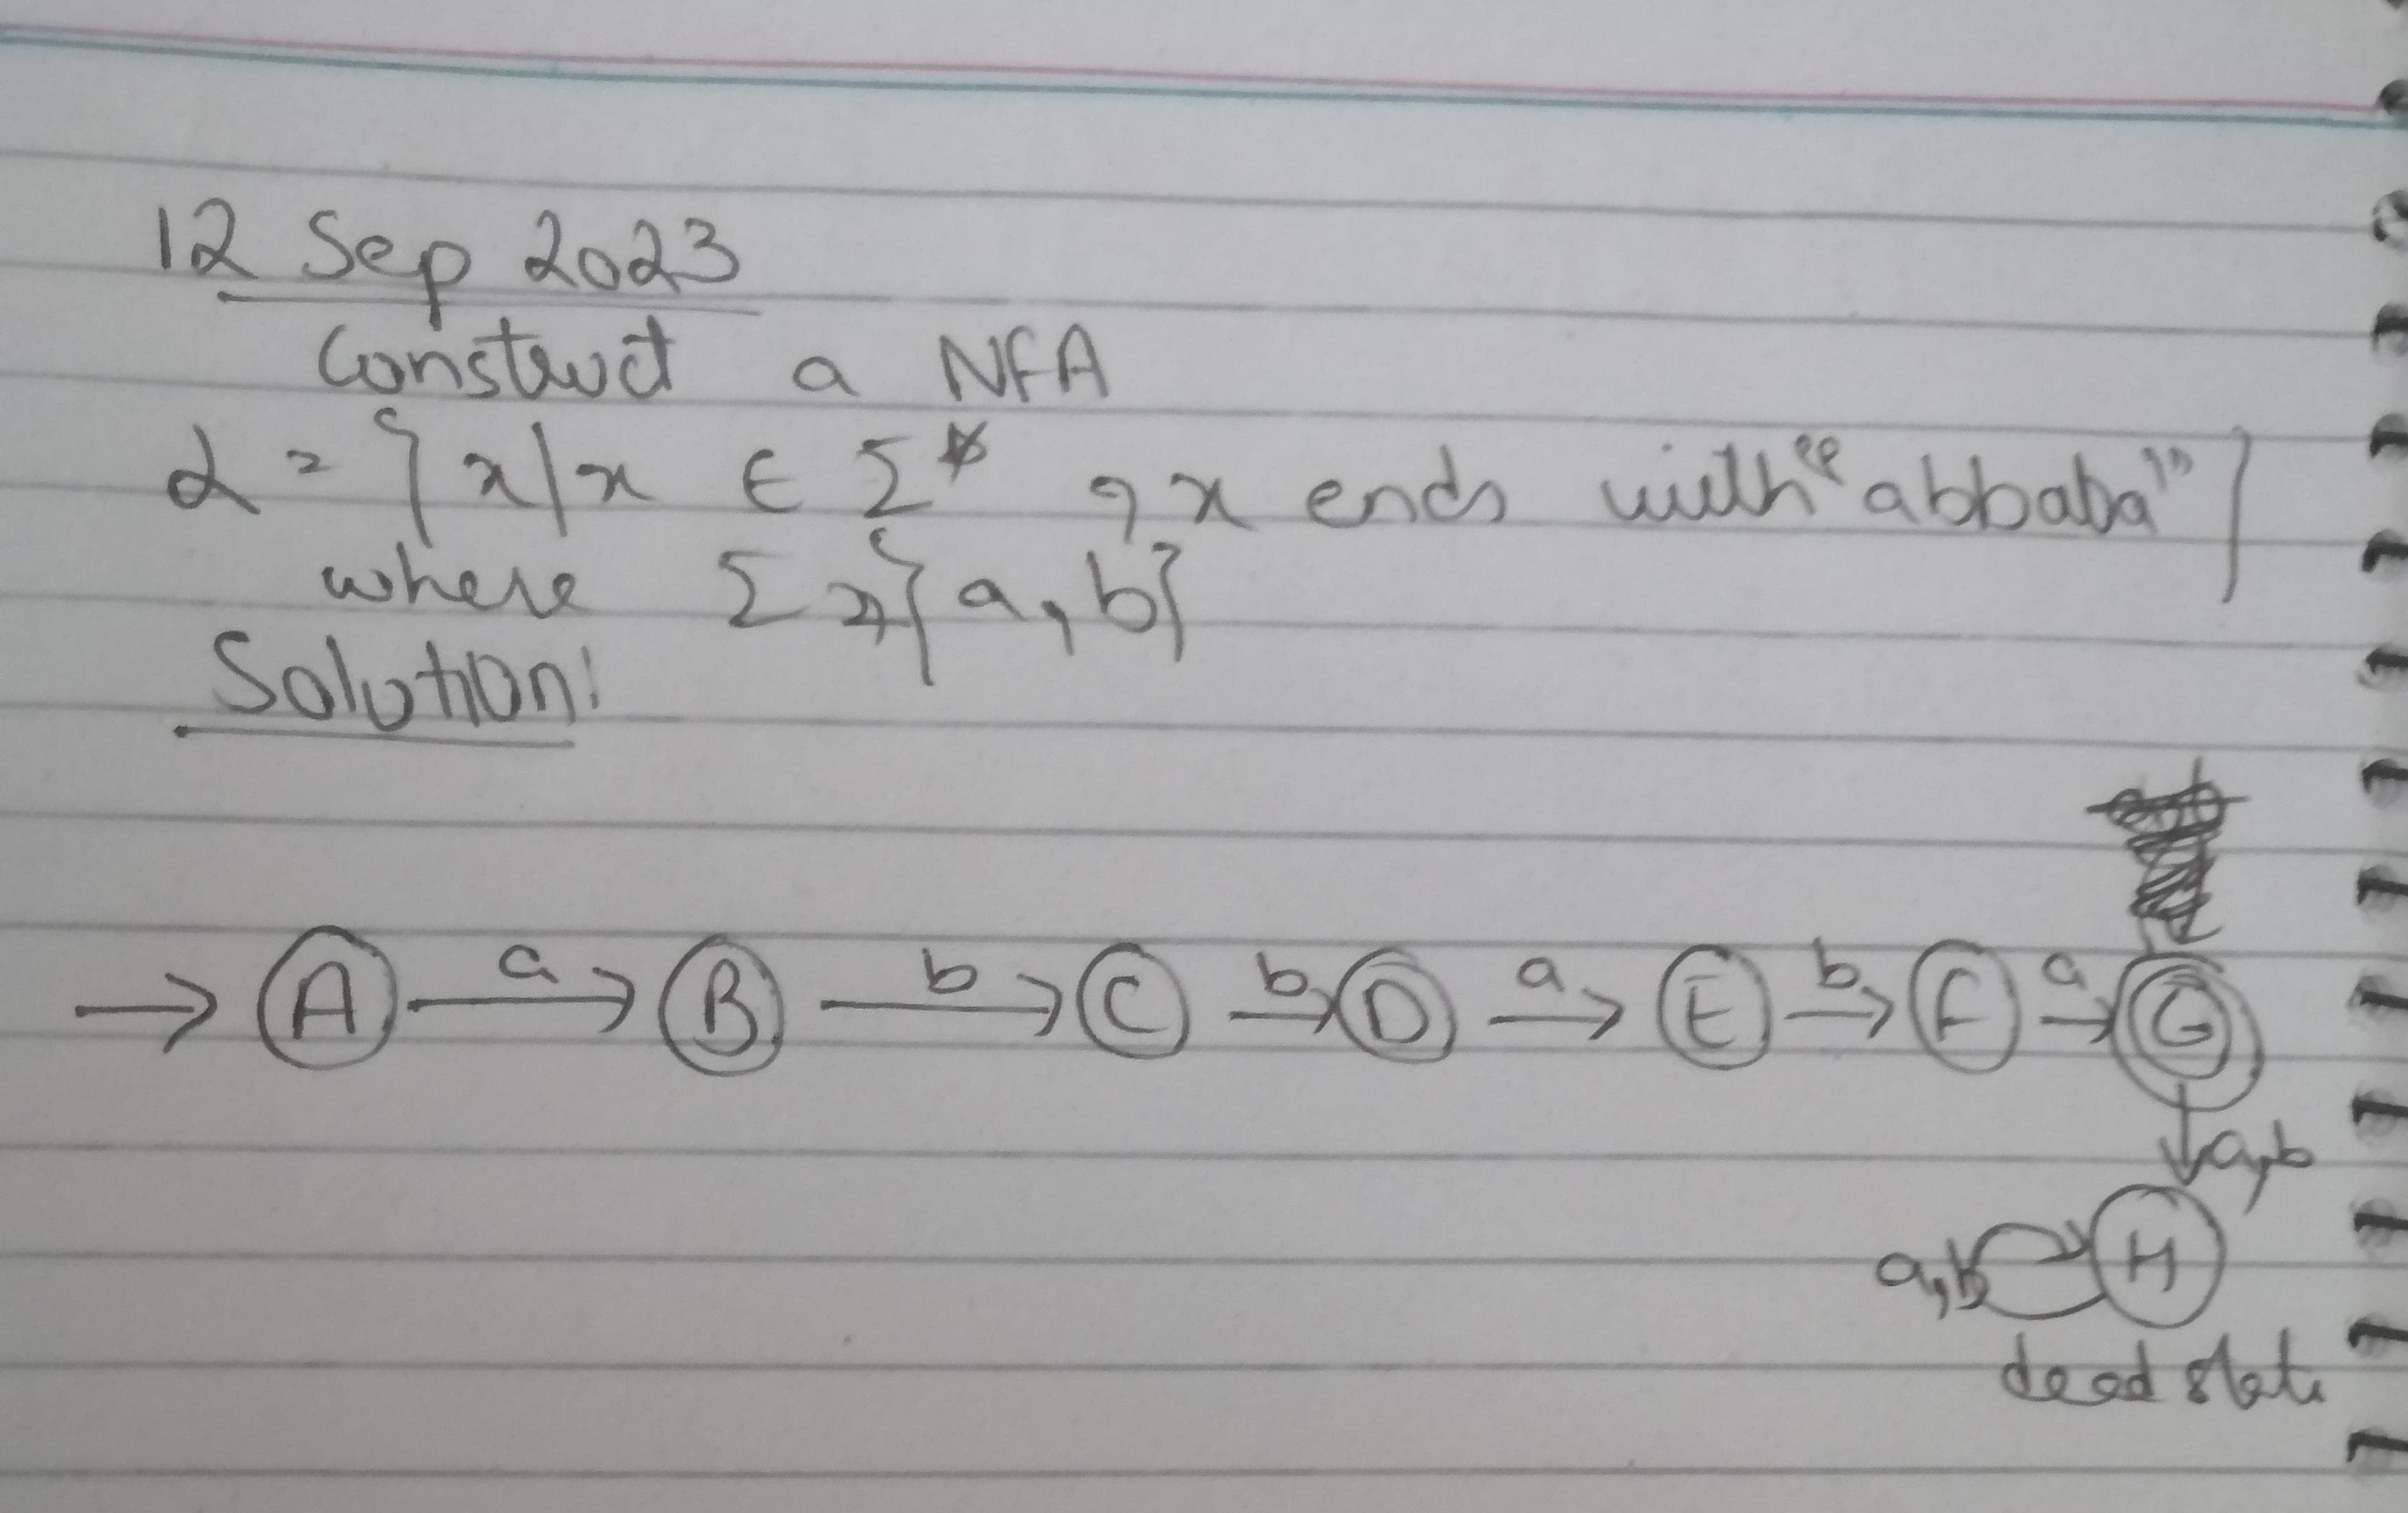 12 Sep 2023
Construct a NFA
L = {x/x ∈ Σ* , x ends with "abbaba"}
where Σ = {a, b}
Solution:
a b b a b a
→ A B C D E F G
a,b
a,b H
dead state